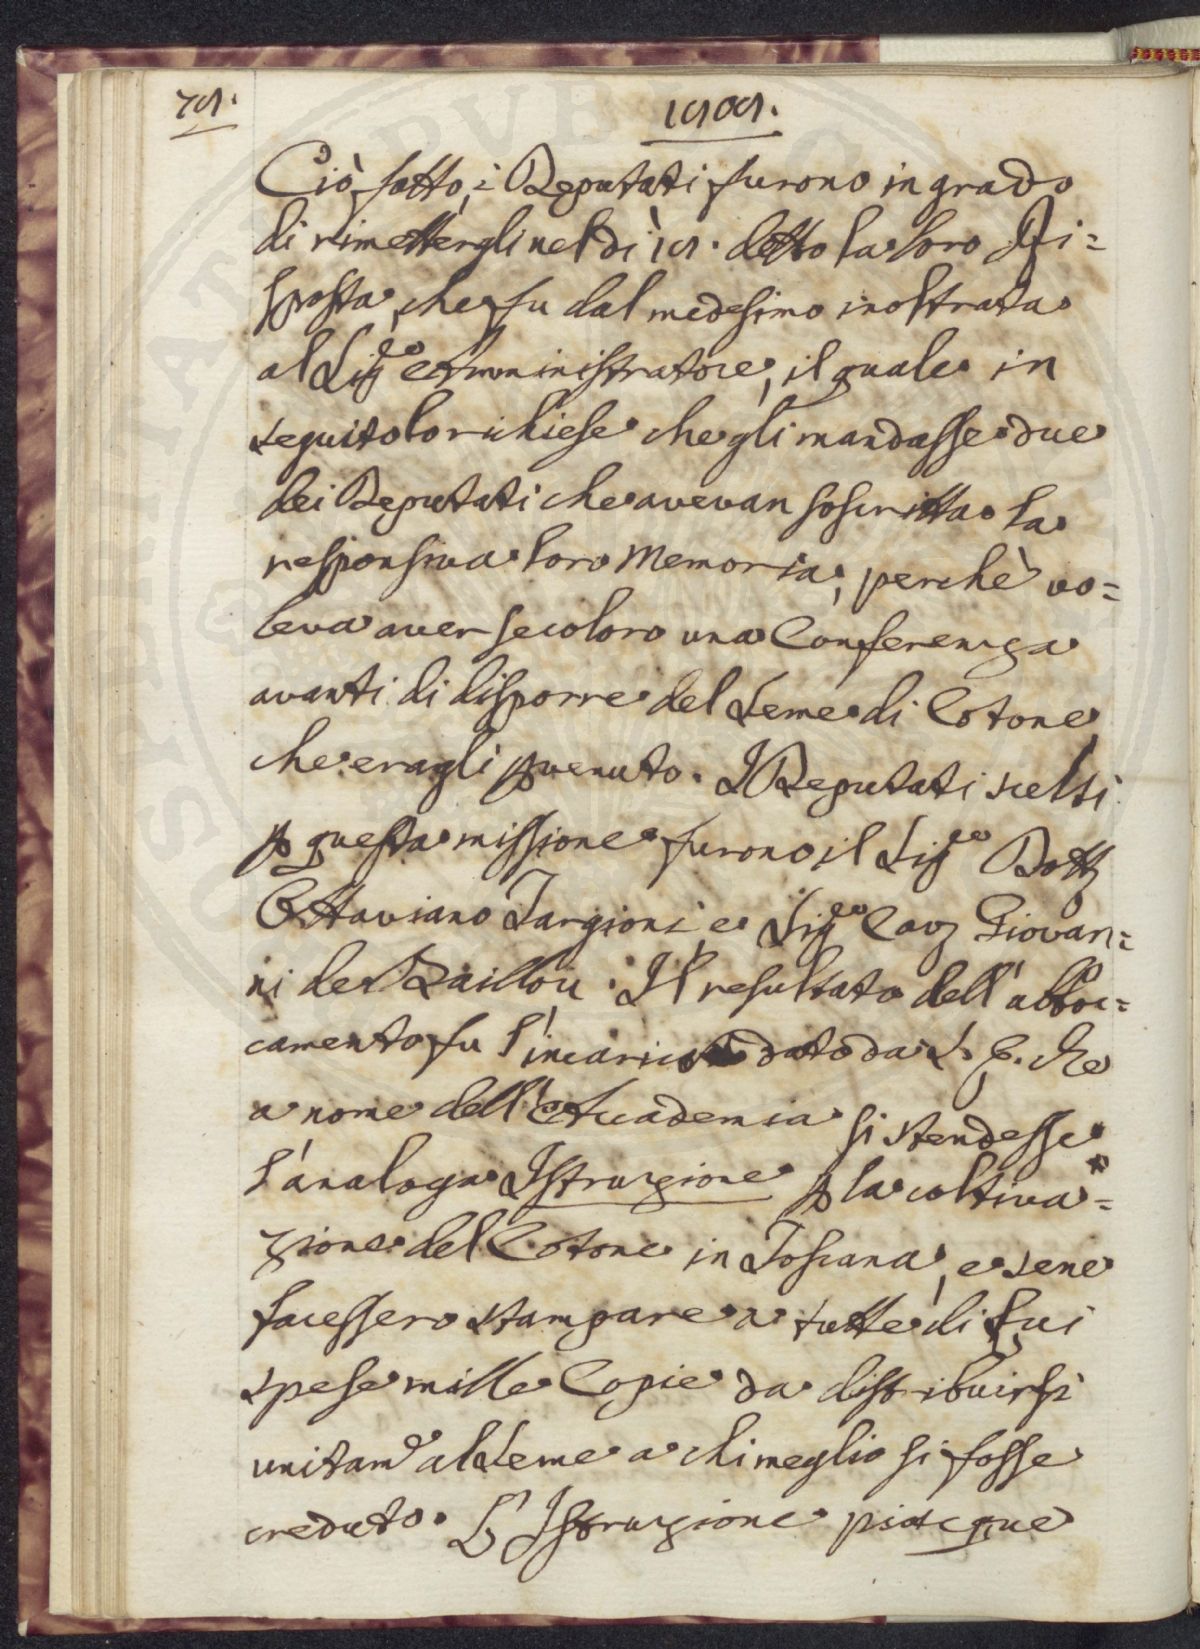 1808.
Ciò fatto, i Deputati furono in grado
di rimettergli nel dì 18. detto la loro Ri=
sposta, che fu dal medesimo inoltrata
al Sigre Amministratore, il quale in
seguito lo richiese che gli mandasse due
dei Deputati che avevan soscritta la
responsiva loro Memoria, perchè vo=
leva aver secoloro una Conferenza
avanti di disporre del Seme di Cotone
che eragli pvenuto. I Deputati scelti
p questa missione furono il Sigre Dott
Ottaviano Targioni, e Sigre Cav Giovan=
ni de Baillou. Il resultato dell'abboc=
camento fu l'incarico dato da S. E. che
a nome dell'Accademia si stendesse
l'analoga Istruzione p la coltiva=
zione del Cotone in Toscana, e sene
facessero stampare a tutte di Lui
spese mille Copie da distribuirsi
unitame al Seme a chi meglio si fosse
creduto. L'Istruzione piacque